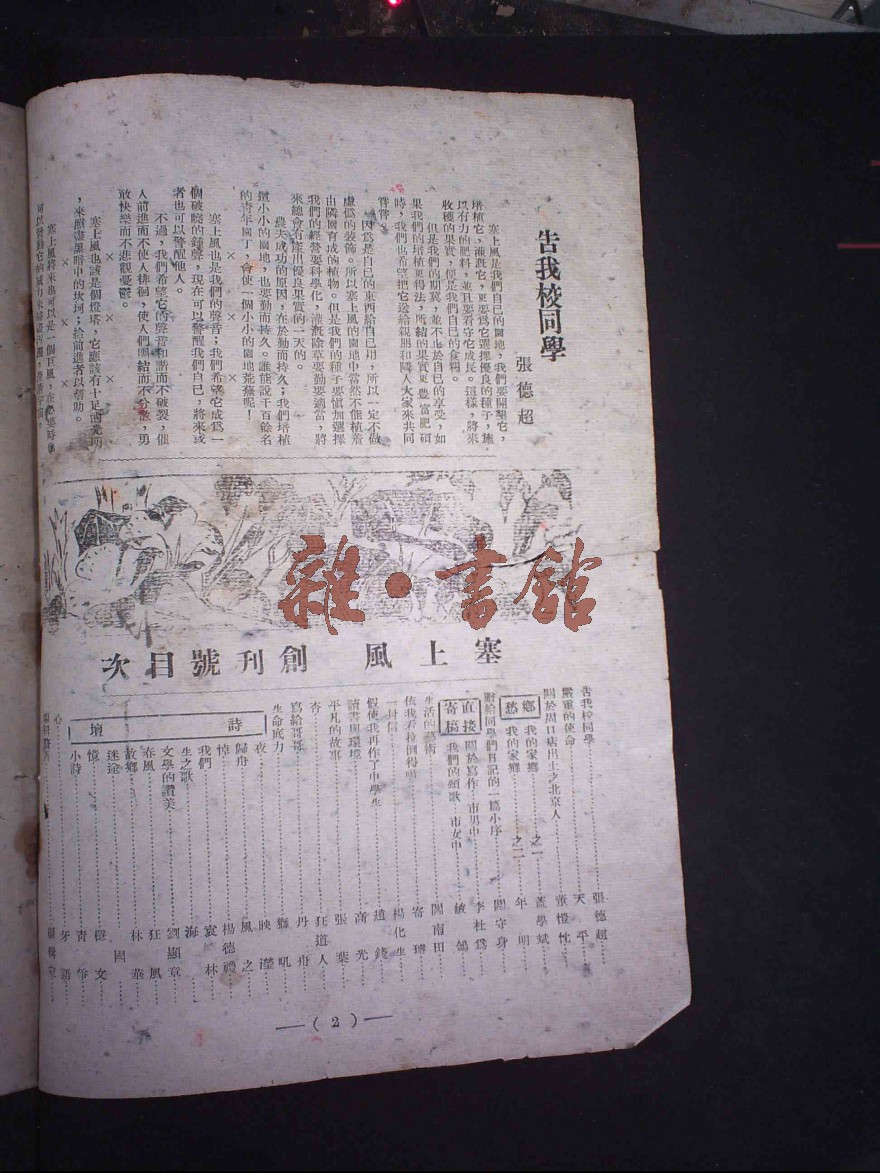 告我校同學
張德超
塞上風是我們自己的園地，我們要開墾它，
培植它，灌漑它，更要爲它選擇優良的種子，施
以有力的肥料，並且要看守它成長。這樣，將來
收穫的果實，便是我們自己的食糧。
但是我們的期冀，並不止於自己的享受，如
果我們的培植更得法，所結的果實更豐富肥碩
時，我們也希望把它送給親朋和隣人大家來共同
嘗嘗。
因爲是自己的東西給自己用，所以一定不做
虛僞的裝飾。所以塞上風的園地中當然不能植着
由隣園育成的植物。但是我們的種子要愼加選擇
我們的經營要科學化，灌漑除草要勤要適當，將
來總會有產出優良果實的一天的。
農夫成功的原因，在於勤而持久；我們培植
這小小的園地，也要勤而持久。誰能說千百餘名
的青年園丁，會使一個小小的園地荒蕪呢！
× × ×
塞上風也是我們的聲音；我們希望它成爲一
個破曉的鐘聲，現在可以警醒我們自己，將來或
者也可以警醒他人。
不過，我們希望它的聲音和諧而不破裂，催
人前進而不使人徘徊，使人們團結而不分散，勇
敢快樂而不悲觀憂鬱。
× × ×
塞上風也該是個燈塔，它應該有十足的光明
，來照盡黑暗中的坎坷；給前進者以幫助。
× × ×
塞上風將來也可以是一個巨風，在必要時它
雜·書館
塞上風 創刊號目次
告我校同學……張德超
嚴重的使命……天平
關於周口店出土之北京人……董憬忱
鄉愁
我的家鄉 之一……蓋學斌
我的家鄉 之二……年明
附給同學們日記的一篇小序……閻守身
直接寄稿
關於寫作 市男中……李杜爲
我們的頌歌 市女中……敏鴿
生活的藝術……閻南田
依我看拉倒得啦……寄璘
一封信……楊化生
假使我再作了中學生……道錢
讀書與環境……高光
平凡的故事……張葉
杏……狂道人
寫給哥哥……丹舟
生命底力……獅吼
詩壇
夜……映瀅
歸舟……風之
悼……楊德禮
我們……寞林
生之歌……海
文學的讚美……劉顯章
春風……狂風
故鄉……林華
迷途……國
憶……樹文
小詩……青爭
心……牙語
—（2）—